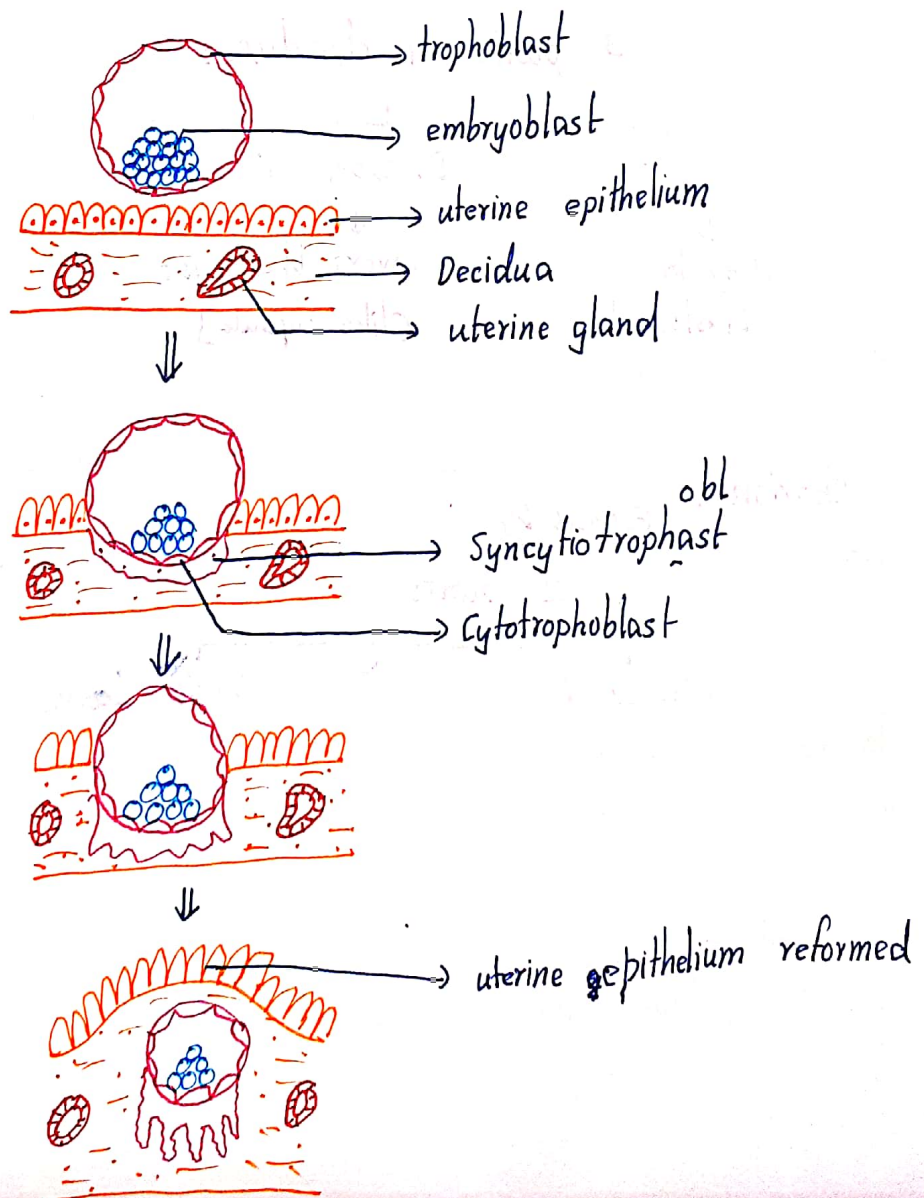 trophoblast
embryoblast
uterine epithelium
Decidua
uterine gland
obl
Syncytiotrophast
Cytotrophoblast
uterine epithelium reformed